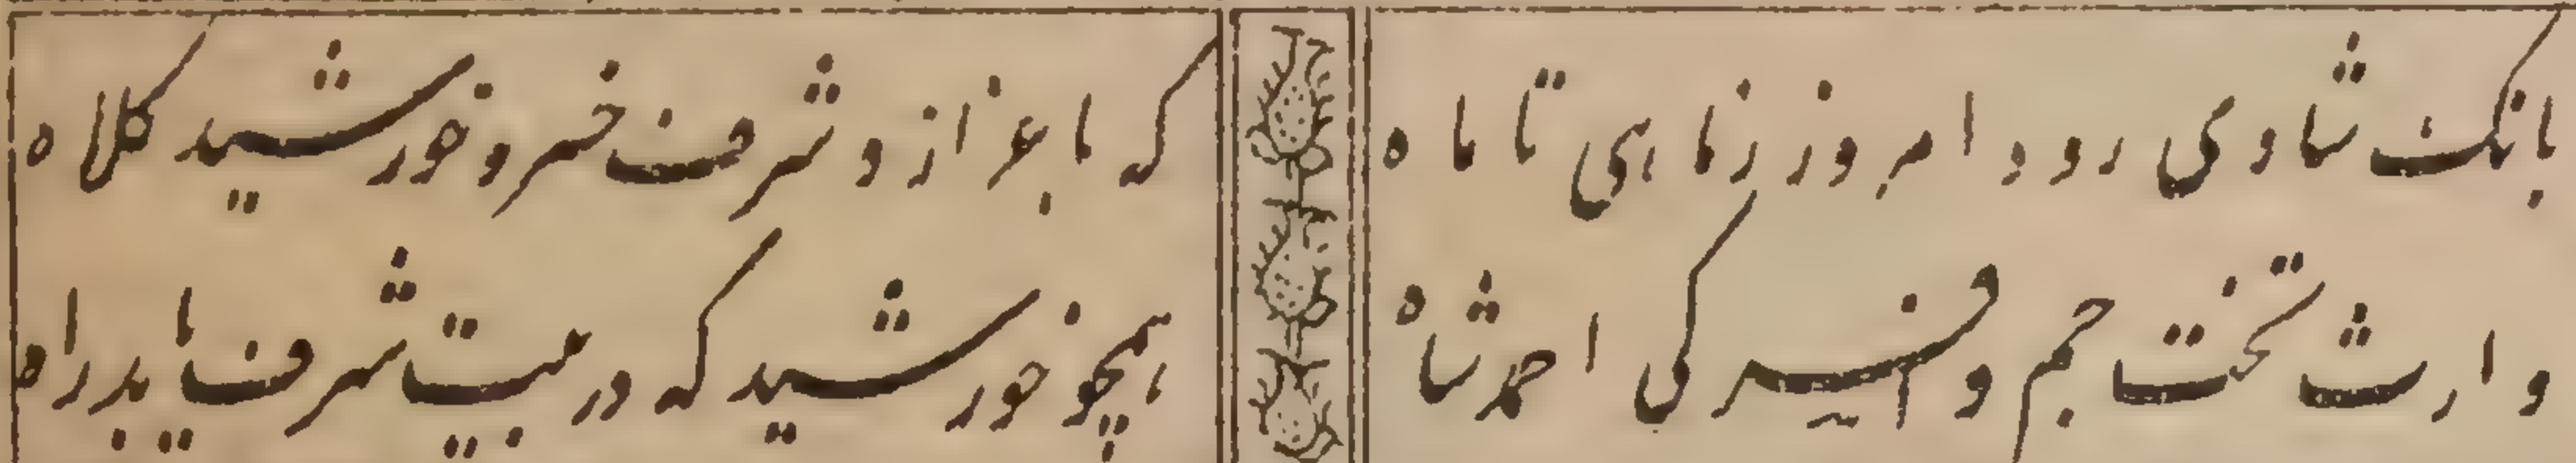 بانک شادی رود امروز ز ماهی تا ماه
که با عزاز و شرف خسرو خورشید کلاه
وارث تخت جم و افسر کی احمد شاه
همچو خورشید که در بیت شرف یابد راه